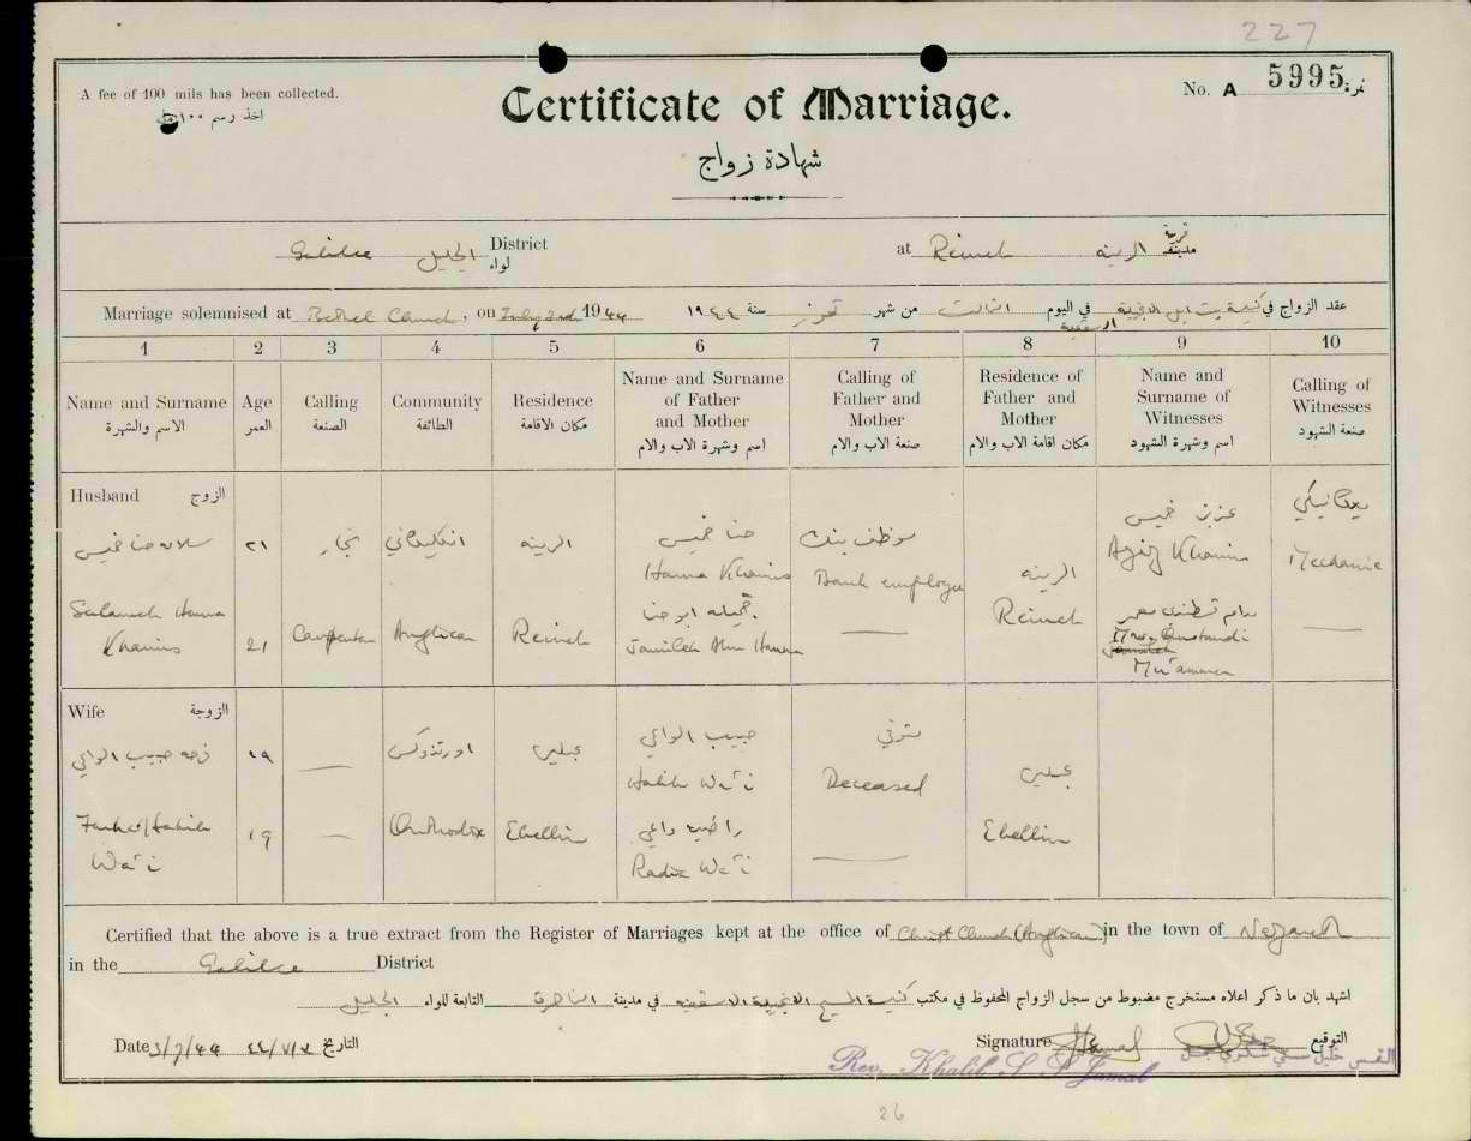 227
A fee of 100 mils has been collected.
اخذ رسم ١٠٠
No. A 5995 نمرة
Certificate of Marriage.
شهادة زواج
Galilee الجليل District لواء
at Reineh الرينه قرية مدينة
Marriage solemnised at Bethel Church, on July 2nd 1944 سنة ١٩٤٤ تموز من شهر في اليوم عقد الزواج في
1 2 3 4 5 6 7 8 9 10
Name and Surname الاسم والشهرة
Age العمر
Calling الصنعة
Community الطائفة
Residence مكان الاقامة
Name and Surname of Father and Mother اسم وشهرة الاب والام
Calling of Father and Mother صنعة الاب والام
Residence of Father and Mother مكان اقامة الاب والام
Name and Surname of Witnesses اسم وشهرة الشهود
Calling of Witnesses صنعة الشهود
Husband الزوج
سلامه حنا خميس ٢١ نجار انكليكاني الرينه حنا خميس موظف بنك الرينه عزيز خميس ميكانيكي
Hanna Khamis Bank employee Aziz Khamis Mechanic
جميله ابو حنا
Salameh Hanna Khamis 21 Carpenter Anglican Reineh Jamileh Abu Hanna — Reineh Mrs. Qustandi Mu'ammer —
Wife الزوجة
حبيب الواعي ١٩ — اورثوذكس عبلين حبيب الواعي متوفي عبلين
Habib Wa'i Deceased
راضيه واعي
Habib Wa'i 19 — Orthodox Ebellin Radia Wa'i — Ebellin
Certified that the above is a true extract from the Register of Marriages kept at the office of Christ Church (Anglican) in the town of Nazareth
in the Galilee District
اشهد بان ما ذكر اعلاه مستخرج مضبوط من سجل الزواج المحفوظ في مكتب كنيسة المسيح الانجيلية الاسقفيه في مدينة الناصرة التابعة للواء الجليل
Date 3/7/44 التاريخ
Signature التوقيع
Rev. Khalil S. Jamal
26